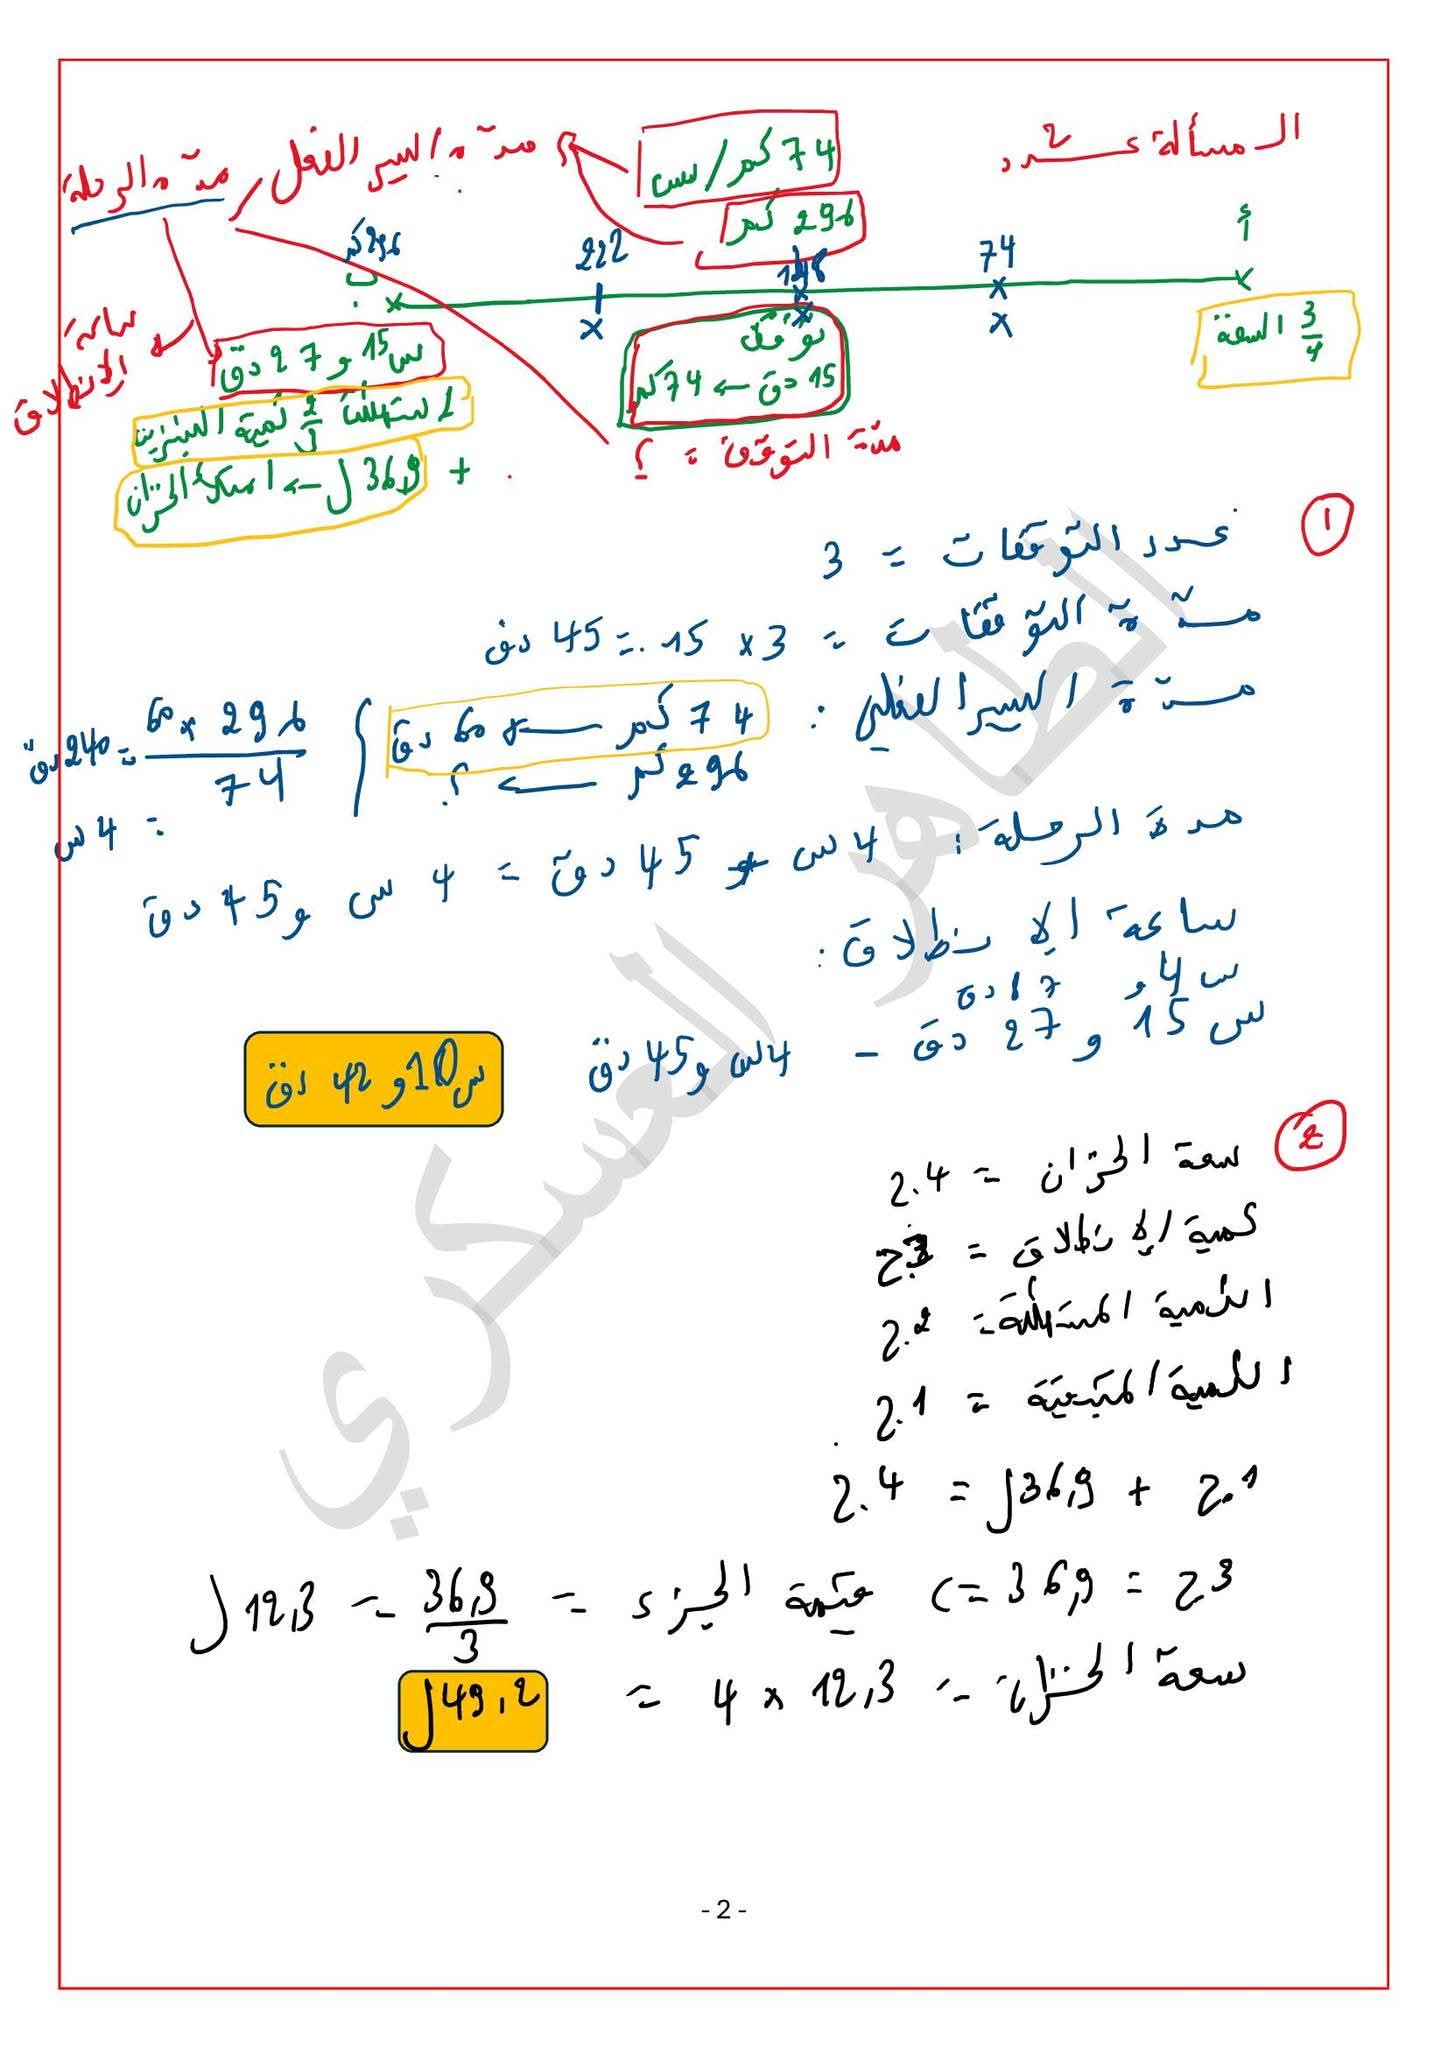 المسألة عـــدد 2
74 كم/س
مدة السير الفعلي
مدة الرحلة
296 كم
أ
74
148
222
296 كم
ب
3/4 السعة
توقف
15 دق ← 74 كم
س 15 و 27 دق
ساعة الانطلاق
استهلك 2/3 كمية البنزين
+ 36,9 ل ← امتلأ الخزان
مدة التوقف = ؟
1
عدد التوقفات = 3
مدة التوقفات = 3 × 15 = 45 دق
مدة السير الفعلي :
74 كم ← 60 دق
296 كم ← ؟
60 × 296 / 74 = 240 دق
= 4 س
مدة الرحلة : 4 س + 45 دق = 4 س و 45 دق
ساعة الانطلاق :
س 14 و 87 دق
س 15 و 27 دق - 4 س و 45 دق
س 10 و 42 دق
2
سعة الخزان = 4.ج
كمية الانطلاق = 3.ج
الكمية المستهلكة = 2.ج
الكمية المتبقية = 1.ج
1.ج + 36,9 ل = 4.ج
3ج = 36,9 => قيمة الجزء = 36,9 / 3 = 12,3 ل
سعة الخزان = 12,3 × 4 = 49,2 ل
الطاهر العسكري
- 2 -